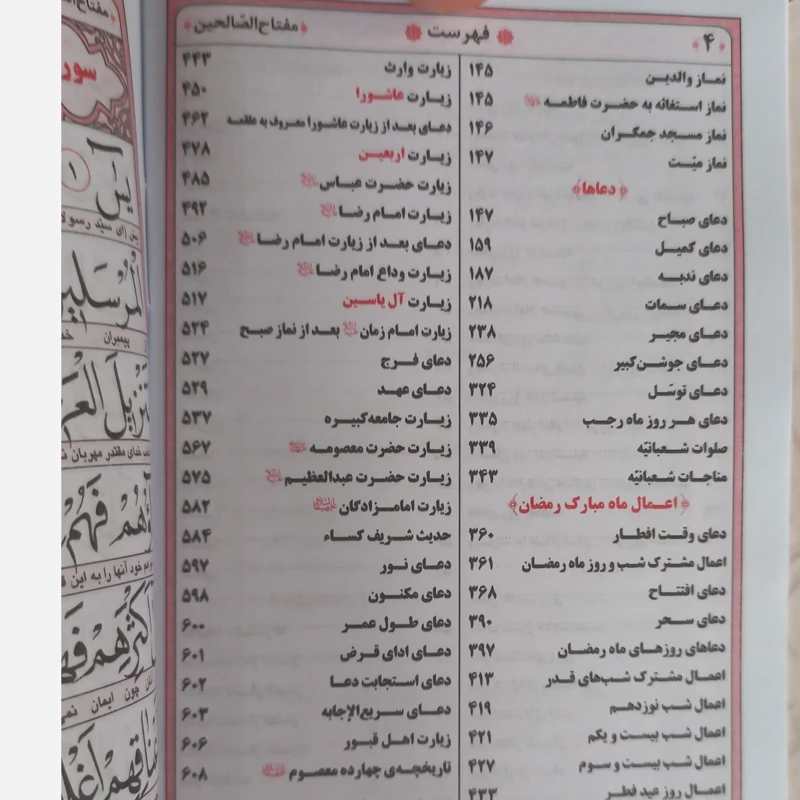 ﴿۴﴾
فهرست
﴿مفتاح‌الصّالحین﴾
نماز والدین ۱۴۵
نماز استغاثه به حضرت فاطمه ۱۴۵
نماز مسجد جمکران ۱۴۶
نماز میّت ۱۴۷
﴿دعاها﴾
دعای صباح ۱۴۷
دعای کمیل ۱۵۹
دعای ندبه ۱۸۷
دعای سمات ۲۱۸
دعای مجیر ۲۳۸
دعای جوشن‌کبیر ۲۵۶
دعای توسّل ۳۲۴
دعای هر روز ماه رجب ۳۳۵
صلوات شعبانیّه ۳۳۹
مناجات شعبانیّه ۳۴۳
﴿اعمال ماه مبارک رمضان﴾
دعای وقت افطار ۳۶۰
اعمال مشترک شب و روز ماه رمضان ۳۶۱
دعای افتتاح ۳۶۸
دعای سحر ۳۹۰
دعاهای روزهای ماه رمضان ۳۹۷
اعمال مشترک شب‌های قدر ۴۱۳
اعمال شب نوزدهم ۴۱۹
اعمال شب بیست و یکم ۴۲۱
اعمال شب بیست و سوم ۴۲۷
اعمال روز عید فطر ۴۳۳
زیارت وارث ۴۴۳
زیارت عاشورا ۴۵۰
دعای بعد از زیارت عاشورا معروف به علقمه ۴۶۲
زیارت اربعین ۴۷۸
زیارت حضرت عباس ۴۸۵
زیارت امام رضا ۴۹۲
دعای بعد از زیارت امام رضا ۵۰۶
زیارت وداع امام رضا ۵۱۶
زیارت آل یاسین ۵۱۷
زیارت امام زمان بعد از نماز صبح ۵۲۴
دعای فرج ۵۲۷
دعای عهد ۵۲۹
زیارت جامعه‌کبیره ۵۳۷
زیارت حضرت معصومه ۵۶۷
زیارت حضرت عبدالعظیم ۵۷۵
زیارت امامزادگان ۵۸۲
حدیث شریف کساء ۵۸۴
دعای نور ۵۹۷
دعای مکنون ۵۹۸
دعای طول عمر ۶۰۰
دعای ادای قرض ۶۰۱
دعای استجابت دعا ۶۰۲
دعای سریع‌الإجابه ۶۰۳
زیارت اهل قبور ۶۰۶
تاریخچه‌ی چهارده معصوم ۶۰۸